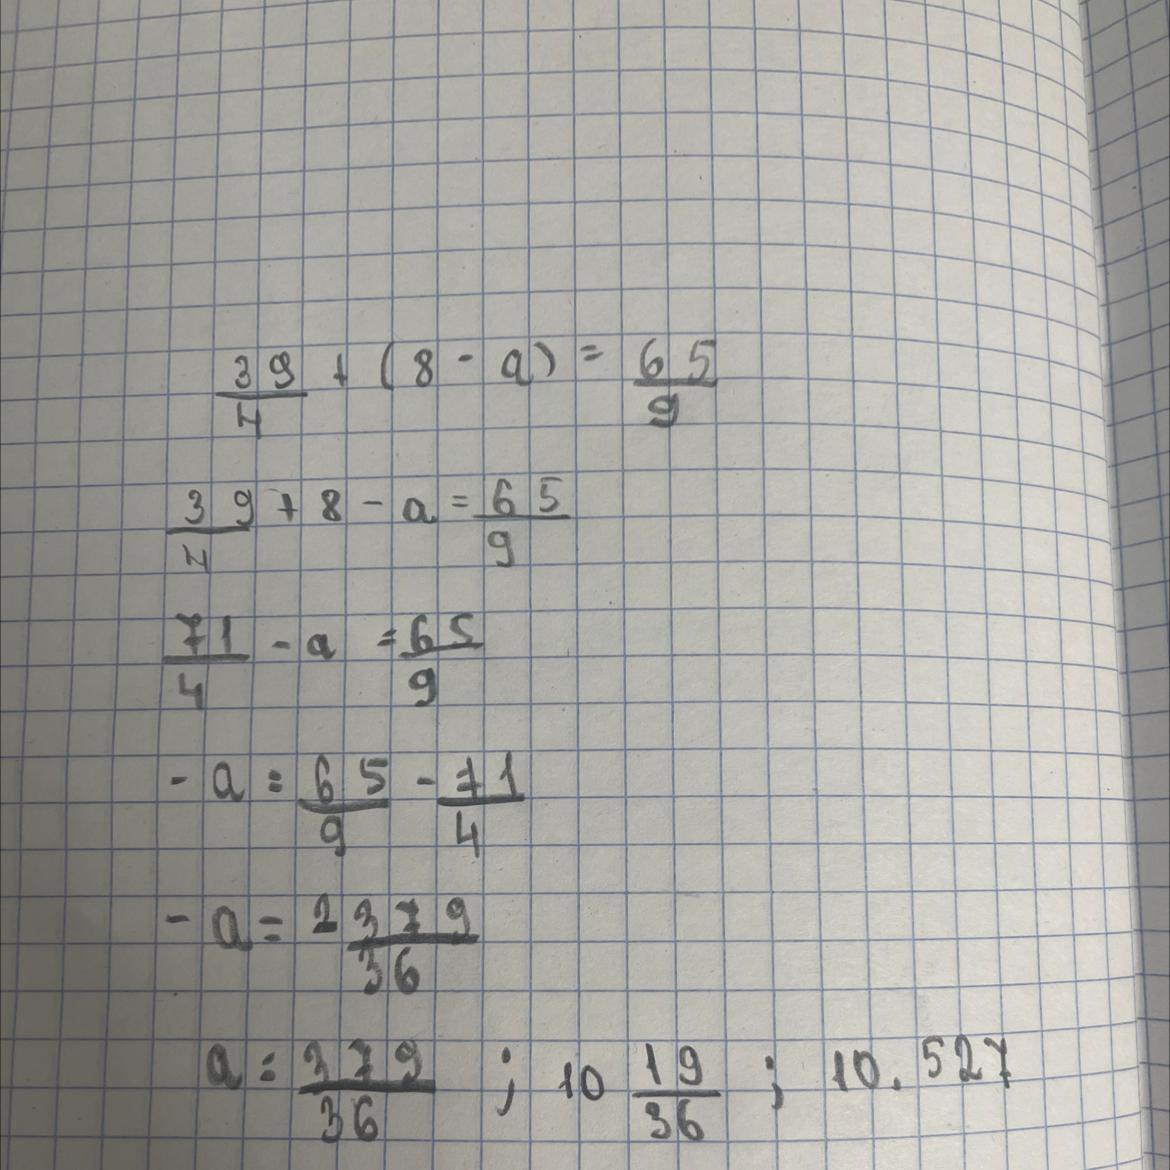 39/4 + (8 - a) = 65/9
39/4 + 8 - a = 65/9
71/4 - a = 65/9
- a = 65/9 - 71/4
- a = 2 379/36
a = 379/36 ; 10 19/36 ; 10.527